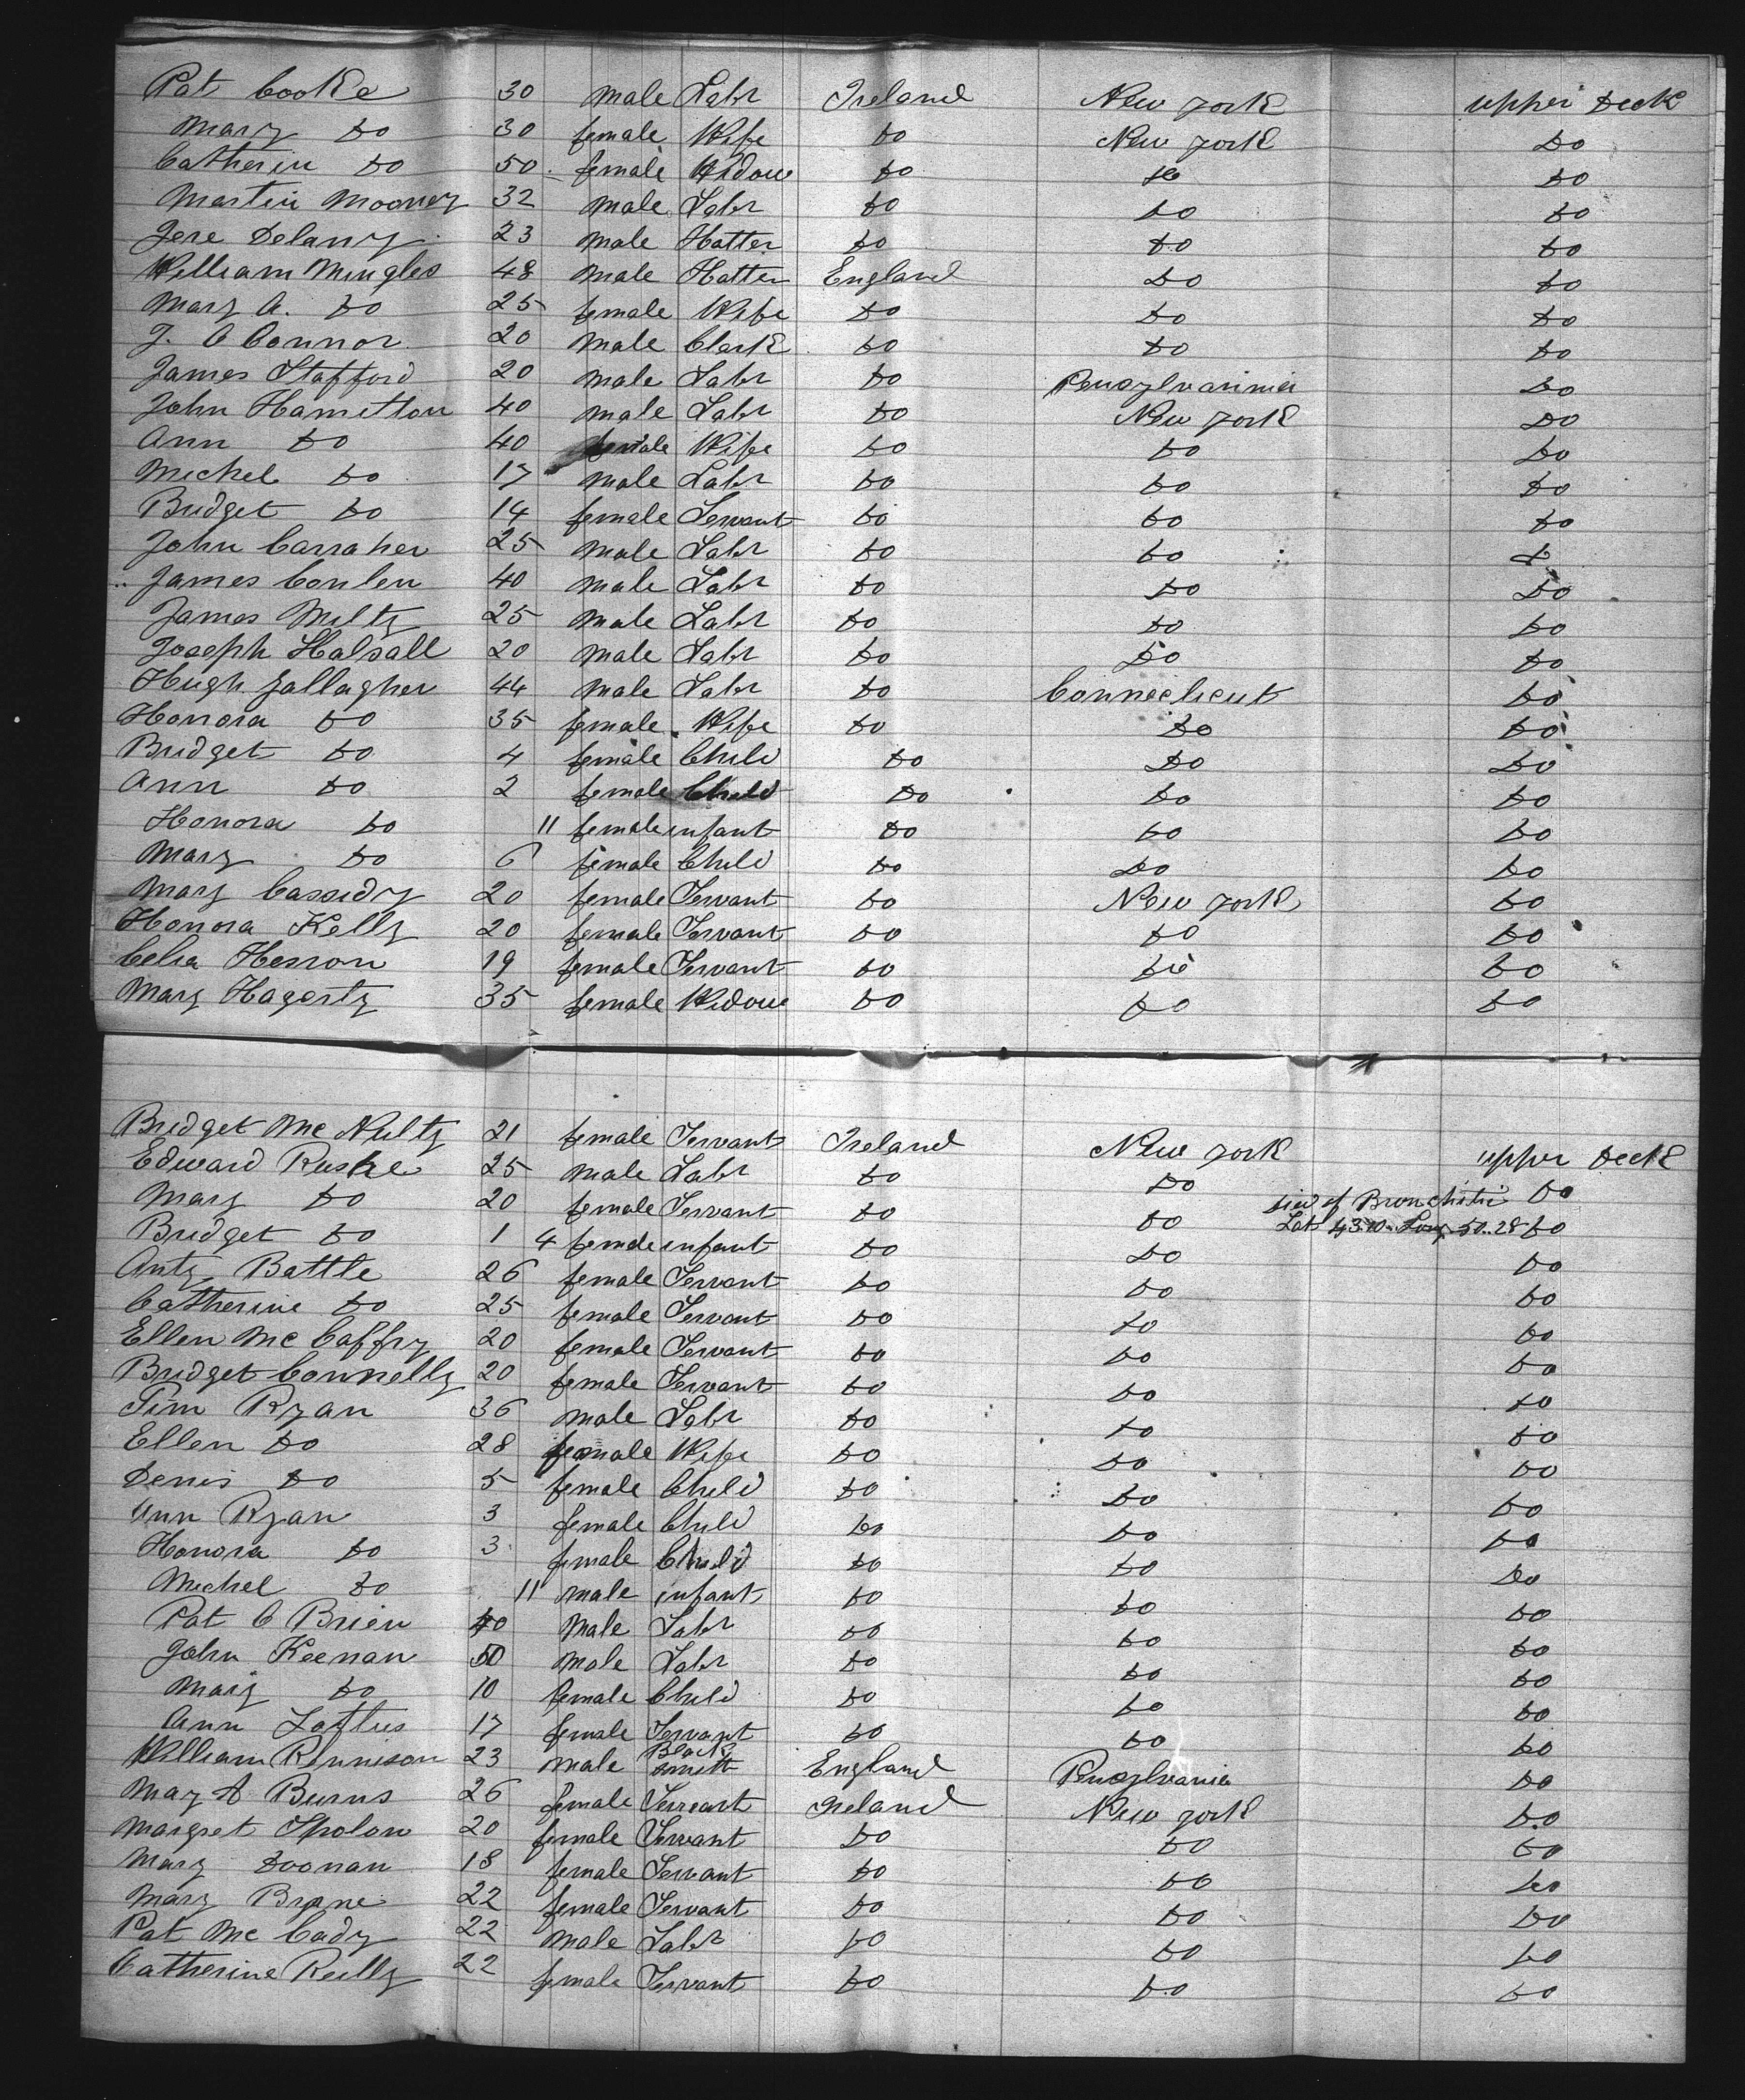 Pat Cooke 30 male Labr Ireland New York upper Deck
Mary Do 30 female Wife Do New York Do
Catherin Do 50 female Widow Do Do Do
Martin Mooney 32 male Labr Do Do Do
Jere Delany 23 male Hatter Do Do Do
William Mingles 48 male Hatter England Do Do
Mary A. Do 25 female Wife Do Do Do
J. O Connor 20 male Clerk Do Do Do
James Stafford 20 male Labr Do Pensylvannia Do
John Hamilton 40 male Labr Do New York Do
Ann Do 40 female Wife Do Do Do
Michel Do 17 male Labr Do Do Do
Bridget Do 14 female Servant Do Do Do
John Carraher 25 male Labr Do Do Do
James Conlen 40 male Labr Do Do Do
James 25 male Labr Do Do Do
Joseph Halsall 20 male Labr Do Do Do
Hugh Gallagher 44 male Labr Do Connecticut Do
Honora Do 35 female Wife Do Do Do
Bridget Do 4 female Child Do Do Do
Ann Do 2 female Child Do Do Do
Honora Do 11 female infant Do Do Do
Mary Do 6 female Child Do Do Do
Mary Cassidy 20 female Servant Do New York Do
Honora Kelly 20 female Servant Do Do Do
Celia Herron 19 female Servant Do Do Do
Mary Hagerty 35 female Widow Do Do Do
Bridget Mc Nulty 21 female Servant Ireland New York upper Deck
Edward Ruske 25 male Labr Do Do Do
Mary Do 20 female Servant Do Do died of Bronchitis Do
Bridget Do 1 4 female infant Do Do Lat 43.10. Long 50..28 Do
Anty Battle 26 female Servant Do Do Do
Catherine Do 25 female Servant Do Do Do
Ellen Mc Caffry 20 female Servant Do Do Do
Bridget Connelly 20 female Servant Do Do Do
Tim Ryan 36 male Labr Do Do Do
Ellen Do 28 female Wife Do Do Do
Denis Do 5 female Child Do Do Do
Ann Ryan 3 female Child Do Do Do
Honora Do 3 female Child Do Do Do
Michel Do 11 male infant Do Do Do
Pat O Brien 40 male Labr Do Do Do
John Keenan 50 male Labr Do Do Do
Mary Do 10 female Child Do Do Do
Ann Loftus 17 female Servant Do Do Do
William Rennison 23 male Black smith England Pensylvania Do
Mary A Burns 26 female Servant Ireland New York Do
Margret 20 female Servant Do Do Do
Mary Doonan 18 female Servant Do Do Do
Mary Bryne 22 female Servant Do Do Do
Pat Mc Cady 22 male Labr Do Do Do
Catherine Reilly 22 female Servant Do Do Do